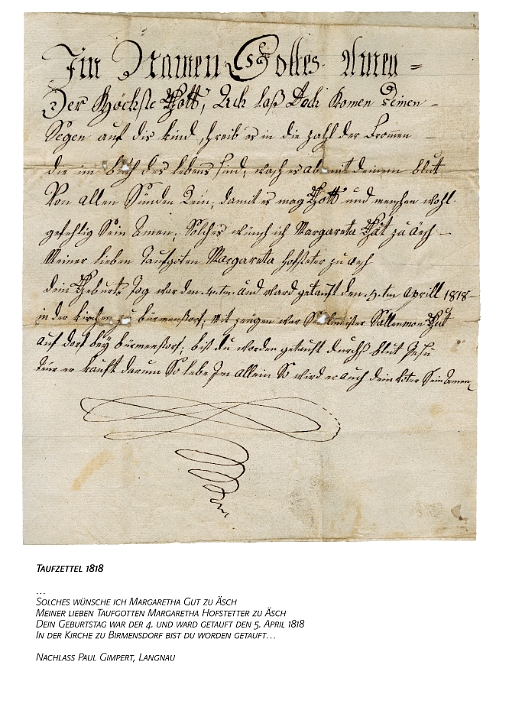 Im Namen Gottes Amen =
Der Höchste Gott, Ach laß doch komen seinen
Segen auf dis kind schreib es in die zahl der fromen
die im buch des lebens sind, wasch es ab mit deinem blut
Von allen Sünden Rein, damit es mag Gott und menschen wohl
gefehlig Sein Amen, Solches wünsch ich Margareta Gut zu Äsch
Meiner lieben Taufgoten Margareta hofsteter zu äsch
dein Geburts tag war den 4ten und ward getauft den 5.tm Aprill 1818
in der kirchen zu birmenstorf, mit zeugen war Sallenmon Gut
auf dorf bey birmenstorf, bist du worden getauft durchs blut Jesu
so lebe Jm allein So wird er auch dein Vater Sein Amen
TAUFZETTEL 1818
...
SOLCHES WÜNSCHE ICH MARGARETHA GUT ZU ÄSCH
MEINER LIEBEN TAUFGOTTEN MARGARETHA HOFSTETTER ZU ÄSCH
DEIN GEBURTSTAG WAR DER 4. UND WARD GETAUFT DEN 5. APRIL 1818
IN DER KIRCHE ZU BIRMENSDORF BIST DU WORDEN GETAUFT...
NACHLASS PAUL GIMPERT, LANGNAU